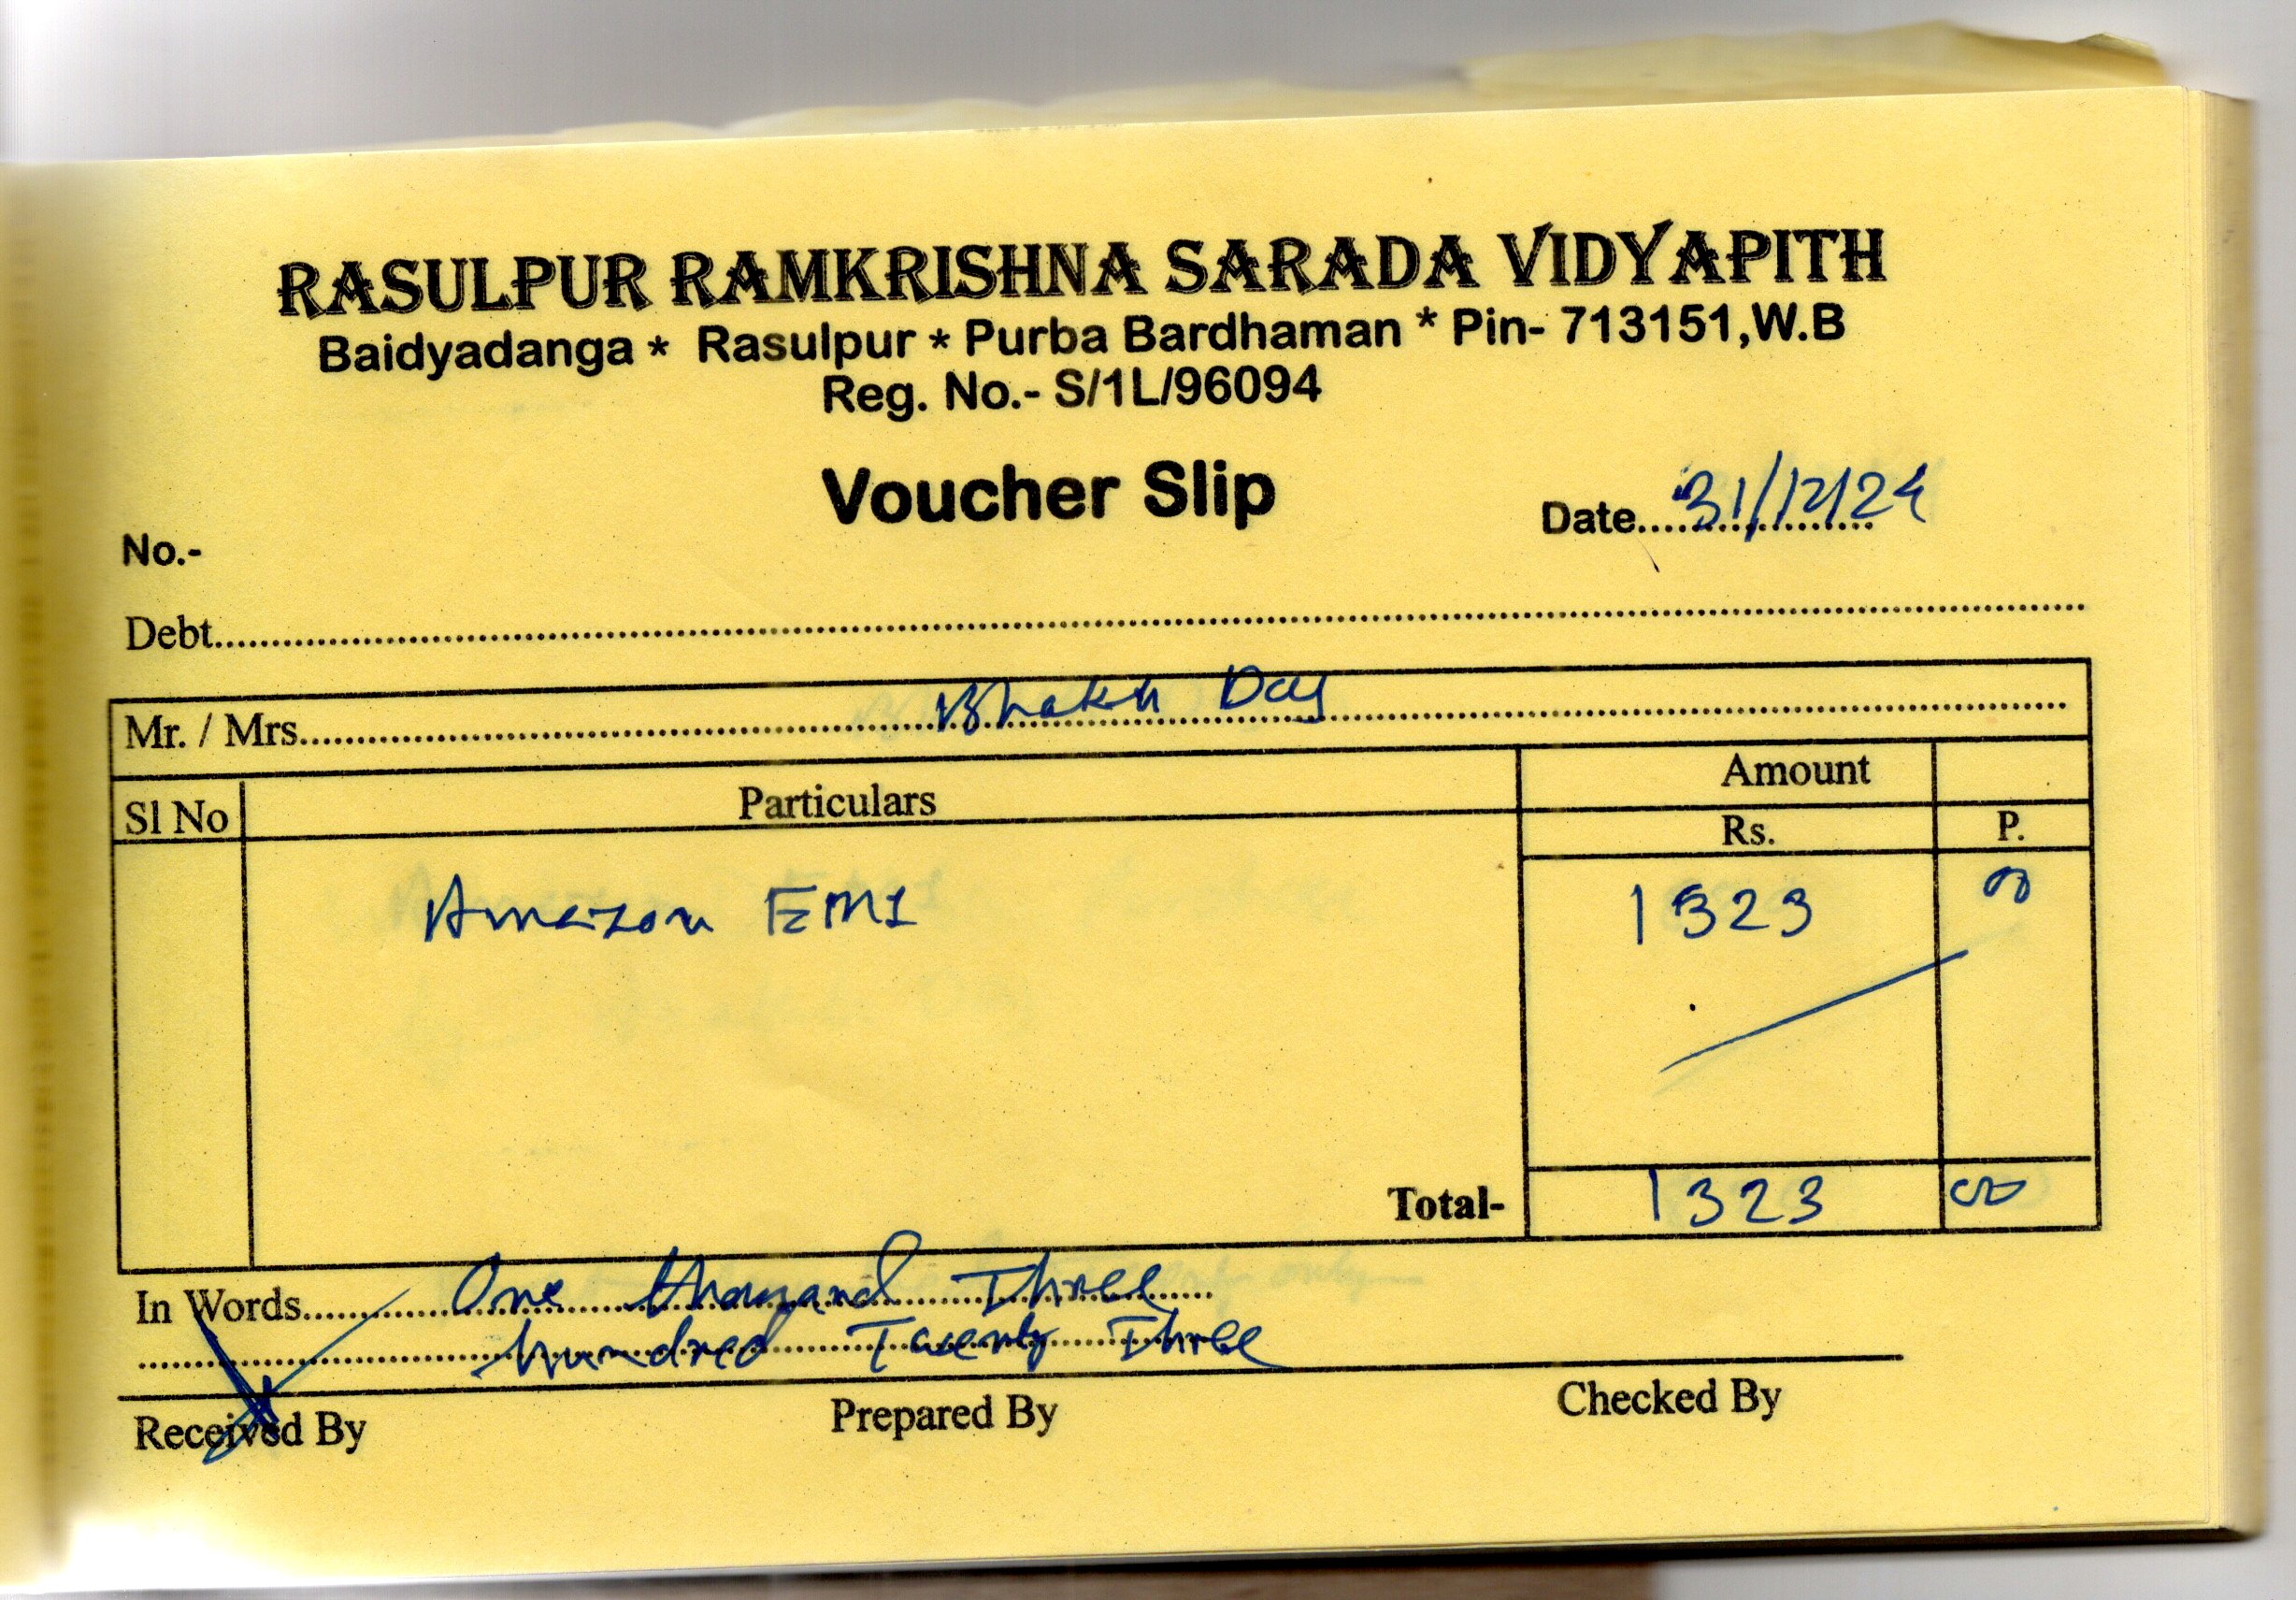 RASULPUR RAMKRISHNA SARADA VIDYAPITH
Baidyadanga * Rasulpur * Purba Bardhaman * Pin- 713151,W.B
Reg. No.- S/1L/96094
Voucher Slip
Date.....31/12/24
No.-
Debt
Mr. / Mrs. Bhakti Das
Sl No Particulars Amount
Rs. P.
Amazon EMI 1323 00
Total- 1323 00
In Words One thousand Three
hundred Twenty Three
Received By Prepared By Checked By